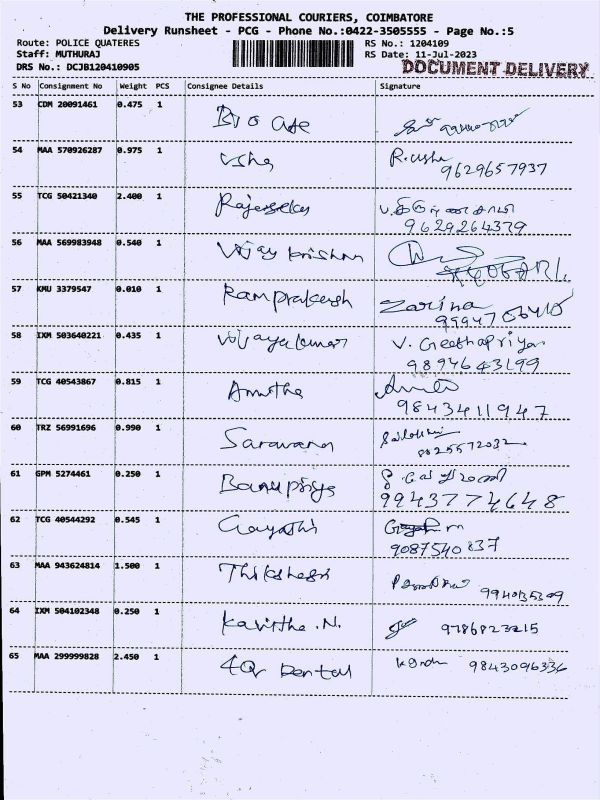 THE PROFESSIONAL COURIERS, COIMBATORE
Delivery Runsheet - PCG - Phone No.:0422-3505555 - Page No.:5
Route: POLICE QUATERES RS No.: 1204109
Staff: MUTHURAJ RS Date: 11-Jul-2023
DRS No.: DCJB120410905 DOCUMENT DELIVERY
S No Consignment No Weight PCS Consignee Details Signature
53 CDM 20091461 0.475 1
54 MAA 570926287 0.975 1 Usha R.usha
9629657937
55 TCG 50421340 2.400 1
9629264379
56 MAA 569983948 0.540 1 Vijay krishnan
57 KMU 3379547 0.010 1 Ramprakash Zarina
58 IXM 503640221 0.435 1 Vijayakumar V. Geethapriya
9894643199
59 TCG 40543867 0.815 1 Amutha
9843411947
60 TRZ 56991696 0.990 1 Saravanan
61 GPM 5274461 0.250 1 Banupriya
9943774648
62 TCG 40544292 0.545 1 Gayathri
9087540837
63 MAA 943624814 1.500 1
64 IXM 504102348 0.250 1 Kavitha .N. 9786823215
65 MAA 299999828 2.450 1 Dental 9843096336